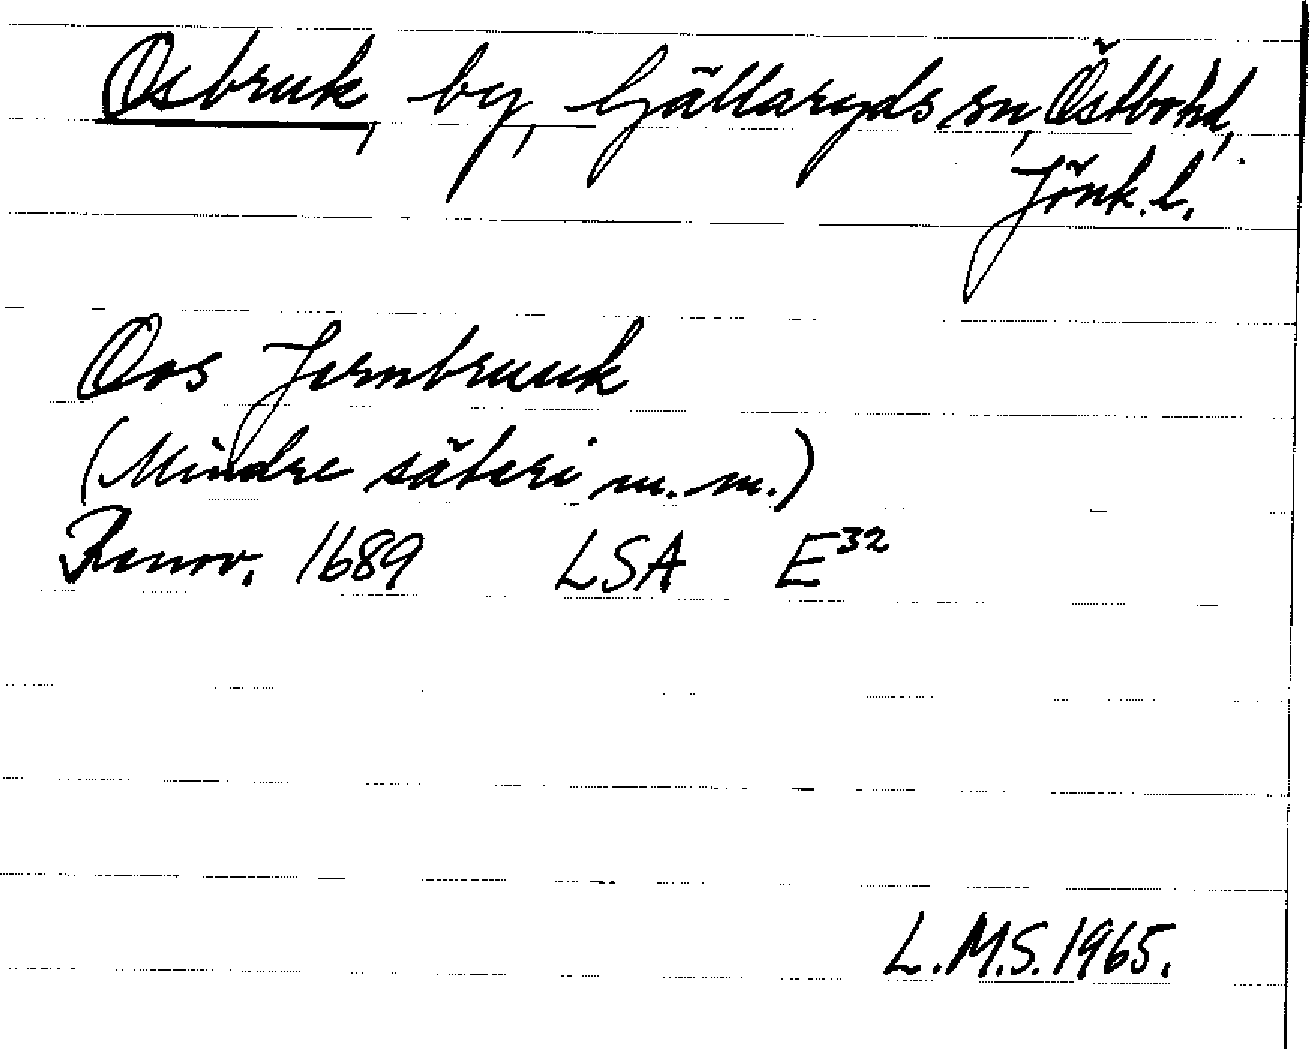 Osbruk, by, Gällaryds sn, Östbo hd,
Jönk. l.
Oos Jernbruuk
(Mindre säteri m. m.)
Renov. 1689 LSA E³²
L.M.S. 1965.